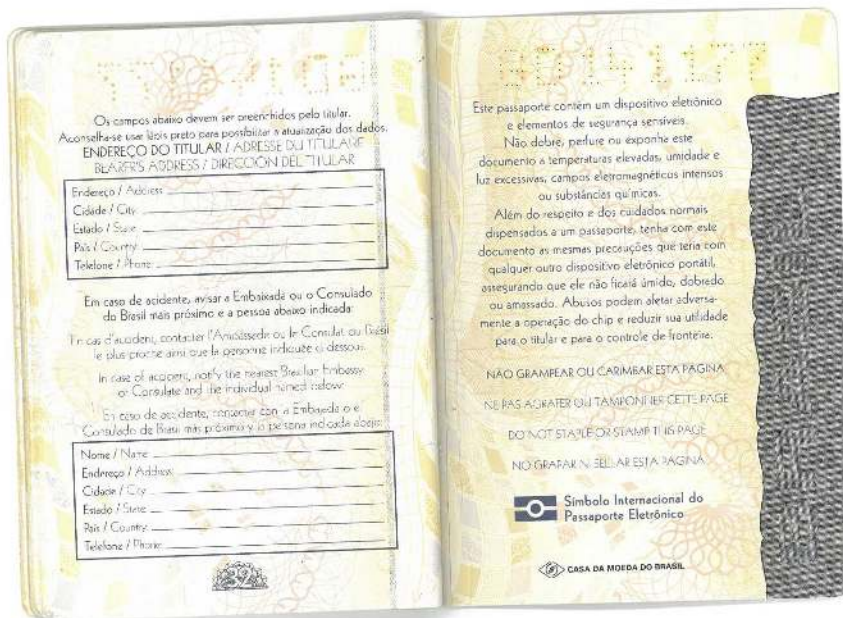 Os campos abaixo devem ser preenchidos pelo titular.
Aconselha-se usar lápis preto para possibilitar a atualização dos dados.
ENDEREÇO DO TITULAR / ADRESSE DU TITULARE
BEARER'S ADDRESS / DIRECCIÓN DEL TITULAR
Endereço / Address
Cidade / City
Estado / State
País / Country
Telefone / Phone
Em caso de acidente, avisar a Embaixada ou o Consulado
do Brasil mais próximo e a pessoa abaixo indicada:
En cas d'accident, contacter l'Ambassade ou le Consulat du Brésil
le plus proche ainsi que la personne indiquée ci dessous:
In case of accident, notify the nearest Brazilian Embassy
or Consulate and the individual named below:
En caso de accidente, contactar con la Embajada o el
Consulado de Brasil más próximo y la persona indicada abajo:
Nome / Name
Endereço / Address
Cidade / City
Estado / State
País / Country
Telefone / Phone
32
Este passaporte contém um dispositivo eletrônico
e elementos de segurança sensíveis.
Não dobre, perfure ou exponha este
documento a temperaturas elevadas, umidade e
luz excessivas, campos eletromagnéticos intensos
ou substâncias químicas.
Além do respeito e dos cuidados normais
dispensados a um passaporte, tenha com este
documento as mesmas precauções que teria com
qualquer outro dispositivo eletrônico portátil,
assegurando que ele não ficará úmido, dobrado
ou amassado. Abusos podem afetar adversa-
mente a operação do chip e reduzir sua utilidade
para o titular e para o controle de fronteira.
NÃO GRAMPEAR OU CARIMBAR ESTA PÁGINA
NE PAS AGRAFER OU TAMPONNER CETTE PAGE
DO NOT STAPLE OR STAMP THIS PAGE
NO GRAPAR NI SELLAR ESTA PÁGINA
Símbolo Internacional do
Passaporte Eletrônico
CASA DA MOEDA DO BRASIL